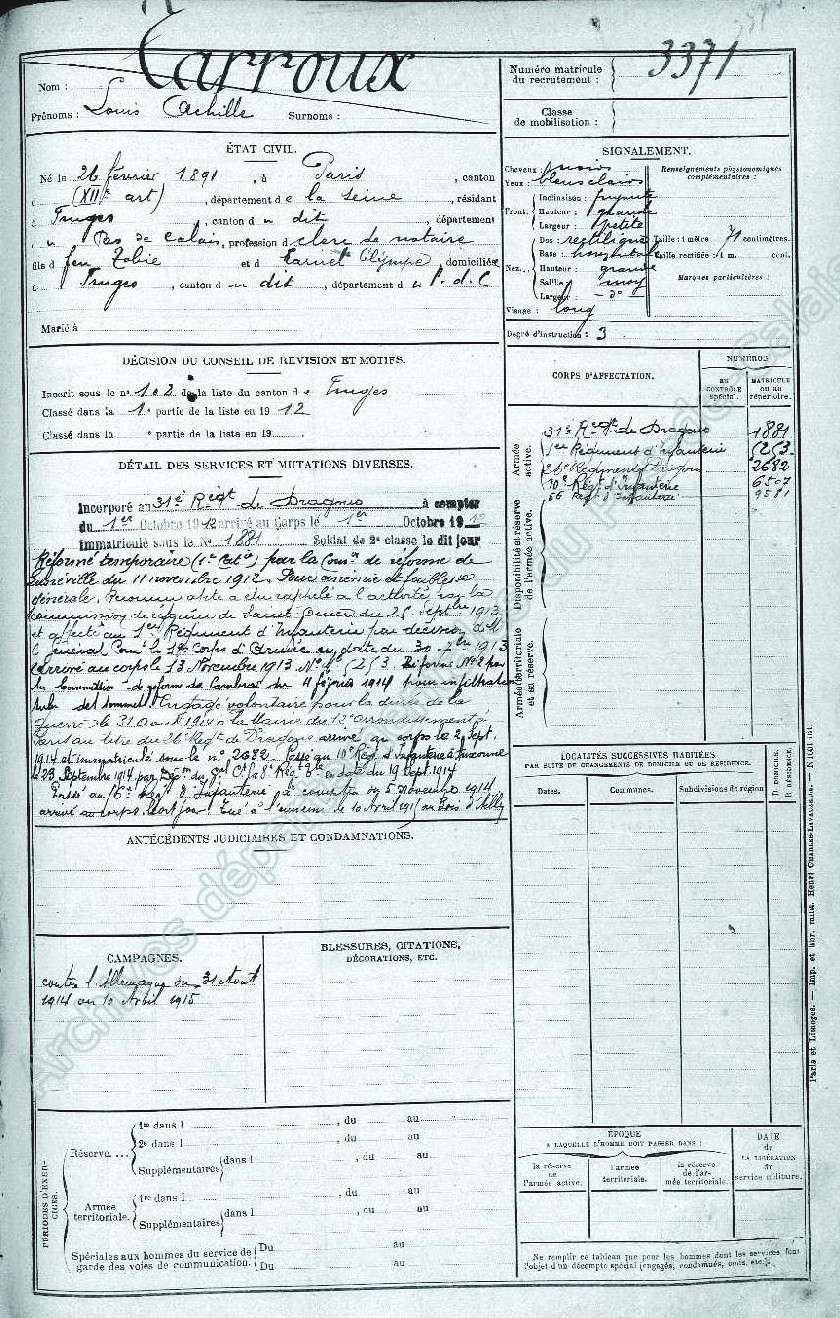 Carroux
Nom :
Prénoms : Louis Achille Surnoms :
Numéro matricule
du recrutement : 3371
Classe
de mobilisation :
ÉTAT CIVIL.
Né le 26 février 1891, à Paris, canton
(XIIe art), département de la Seine, résidant
à Fruges, canton du dit, département
du Pas de Calais, profession d clerc de notaire
fils d feu Tobie et d Olympe, domiciliés
à Fruges, canton du dit, département du P. d. C
Marié à
SIGNALEMENT.
Cheveux :
Yeux : bleus clairs
Front. Inclinaison :
Hauteur : grande
Largeur : petite
Nez. Dos : rectiligne
Base : horizontale
Hauteur : grande
Saillie : moy
Largeur : - do -
Visage : long
Renseignements physionomiques
complémentaires :
Taille : 1 mètre 71 centimètres.
Taille rectifiée : 1 m. cent.
Marques particulières :
Degré d'instruction : 3
DÉCISION DU CONSEIL DE REVISION ET MOTIFS.
Inscrit sous le n° 102 de la liste du canton de Fruges
Classé dans la 1e partie de la liste en 1912
Classé dans la e partie de la liste en 19
CORPS D'AFFECTATION.
NUMÉROS
AU CONTRÔLE spécial.
MATRICULE ou au répertoire.
Armée active.
31e Régt de Dragons 1881
1er Régiment d'infanterie 5253
26e Régiment Dragons 2682
10e Régt d'Infanterie 6507
56 Régt d'Infanterie 9581
Disponibilité et réserve de l'armée active.
Armée territoriale et sa réserve.
DÉTAIL DES SERVICES ET MUTATIONS DIVERSES.
Incorporé au 31e Régt de Dragons à compter
du 1er Octobre 1912 arrivé au Corps le 1er Octobre 1912
Immatriculé sous le No 1881 Soldat de 2e classe le dit jour
Réformé temporaire (1e Catie) par la Comon de réforme de
Lunéville du 11 novembre 1912. Pour anémie et faiblesse
générale. Reconnu apte a été rappelé à l'activité par la
commission de réforme de Saint-Omer du 25 Septbre 1913
et affecté au 1er Régiment d'Infanterie par décision de M.
le Général Comt le 1er Corps d'Armée en date du 30 7bre 1913
arrivé au corps le 13 Novembre 1913. No Mle 5253. Réformé No 2 par
la Commission de réforme de Cambrai du 4 février 1914 pour infiltration
des sommets. Engagé volontaire pour la durée de la
guerre le 31 Août 1914 à la Mairie du 12e arrondissement à
Paris au titre du 26e Régt de Dragons arrivé au corps le 2 Sept.
1914 et immatriculé sous le no 2682. Passé au 10e Régt d'Infanterie à Auxonne
le 23 Septembre 1914 par Don du Gal Ct la 8e Rég. en date du 19 Sept. 1914
Passé au 56e Régt d'Infanterie à compter du 5 novembre 1914
arrivé au corps le dit jour. Tué à l'ennemi le 10 Avril 1915 au Bois d'Ailly
LOCALITÉS SUCCESSIVES HABITÉES
PAR SUITE DE CHANGEMENTS DE DOMICILE OU DE RÉSIDENCE.
Dates. Communes. Subdivisions de région
D. DOMICILE.
R. RÉSIDENCE.
ANTÉCÉDENTS JUDICIAIRES ET CONDAMNATIONS.
CAMPAGNES.
contre l'Allemagne du 31 Aout
1914 au 10 Avril 1915
BLESSURES, CITATIONS,
DÉCORATIONS, ETC.
PÉRIODES D'EXERCICES.
Réserve ... 1re dans l , du au
2e dans l , du au
Supplémentaires dans l , du au
Armée territoriale. 1re dans l , du au
Supplémentaires dans l , du au
Spéciales aux hommes du service de Du au
garde des voies de communication. Du au
ÉPOQUE
A LAQUELLE L'HOMME DOIT PASSER DANS :
la réserve de l'armée active.
l'armée territoriale.
la réserve de l'armée territoriale.
DATE
de
LA LIBÉRATION
du
service militaire.
Ne remplir ce tableau que pour les hommes dont les services font
l'objet d'un décompte spécial (engagés, condamnés, omis, etc.).
Paris et Limoges. — Imp. et libr. milit. Henri Charles-Lavauzelle.
Archives départementales du Pas-de-Calais